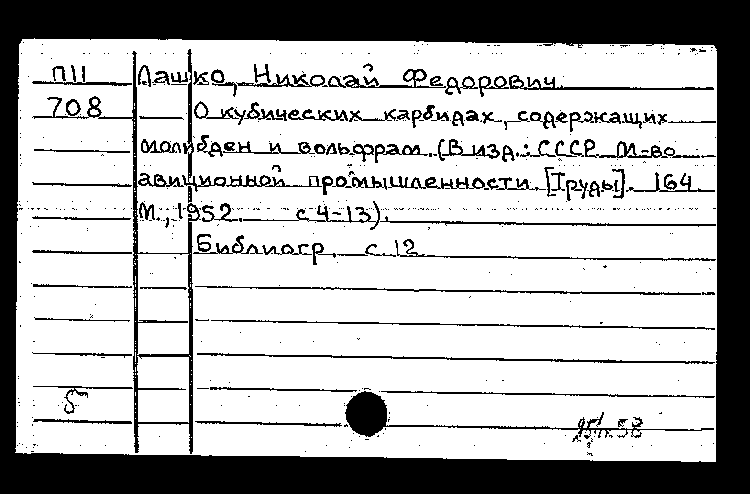 П11 Лашко, Николай Федорович
708 О кубических карбидах, содержащих
молибден и вольфрам. (В изд.: СССР. М-во
авиционной промышленности. [Труды]. 164.
М., 1952. с 4-13).
Библиогр. с. 12